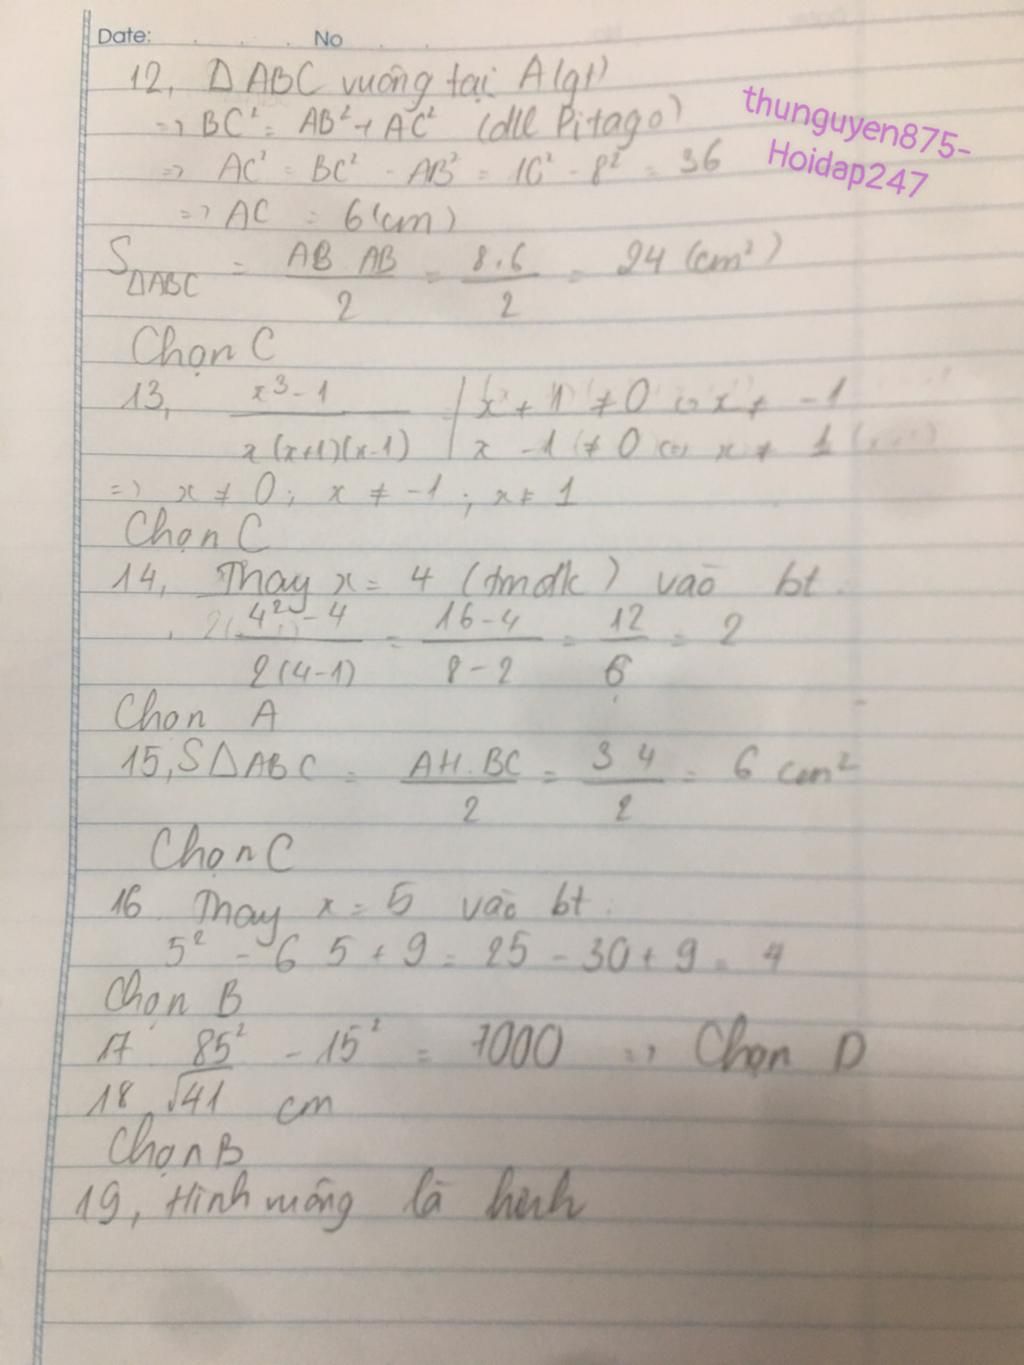 Date: No
12, Δ ABC vuông tại A (gt)
=> BC² = AB² + AC² (đll Pitago)
=> AC² = BC² - AB² = 10² - 8² = 36
=> AC = 6 (cm)
S ΔABC = AB AB / 2 = 8.6 / 2 = 24 (cm²)
Chọn C
13, x³ - 1 / x(x+1)(x-1) | x + 1 ≠ 0 <=> x ≠ -1
x - 1 ≠ 0 <=> x ≠ 1
=> x ≠ 0 ; x ≠ -1 ; x ≠ 1
Chọn C
14, Thay x = 4 (tmđk) vào bt
4² - 4 / 2(4-1) = 16-4 / 8-2 = 12 / 6 = 2
Chọn A
15, SΔABC = AH.BC / 2 = 3 4 / 2 = 6 cm²
Chọn C
16 Thay x = 5 vào bt :
5² - 6 5 + 9 = 25 - 30 + 9 = 4
Chọn B
17 85² - 15² = 7000 => Chọn D
18, √41 cm
Chọn B
19, Hình vuông là hình
thunguyen875-
Hoidap247